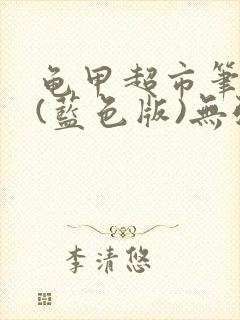 龟甲超市筆
(藍色版)無
李清悠